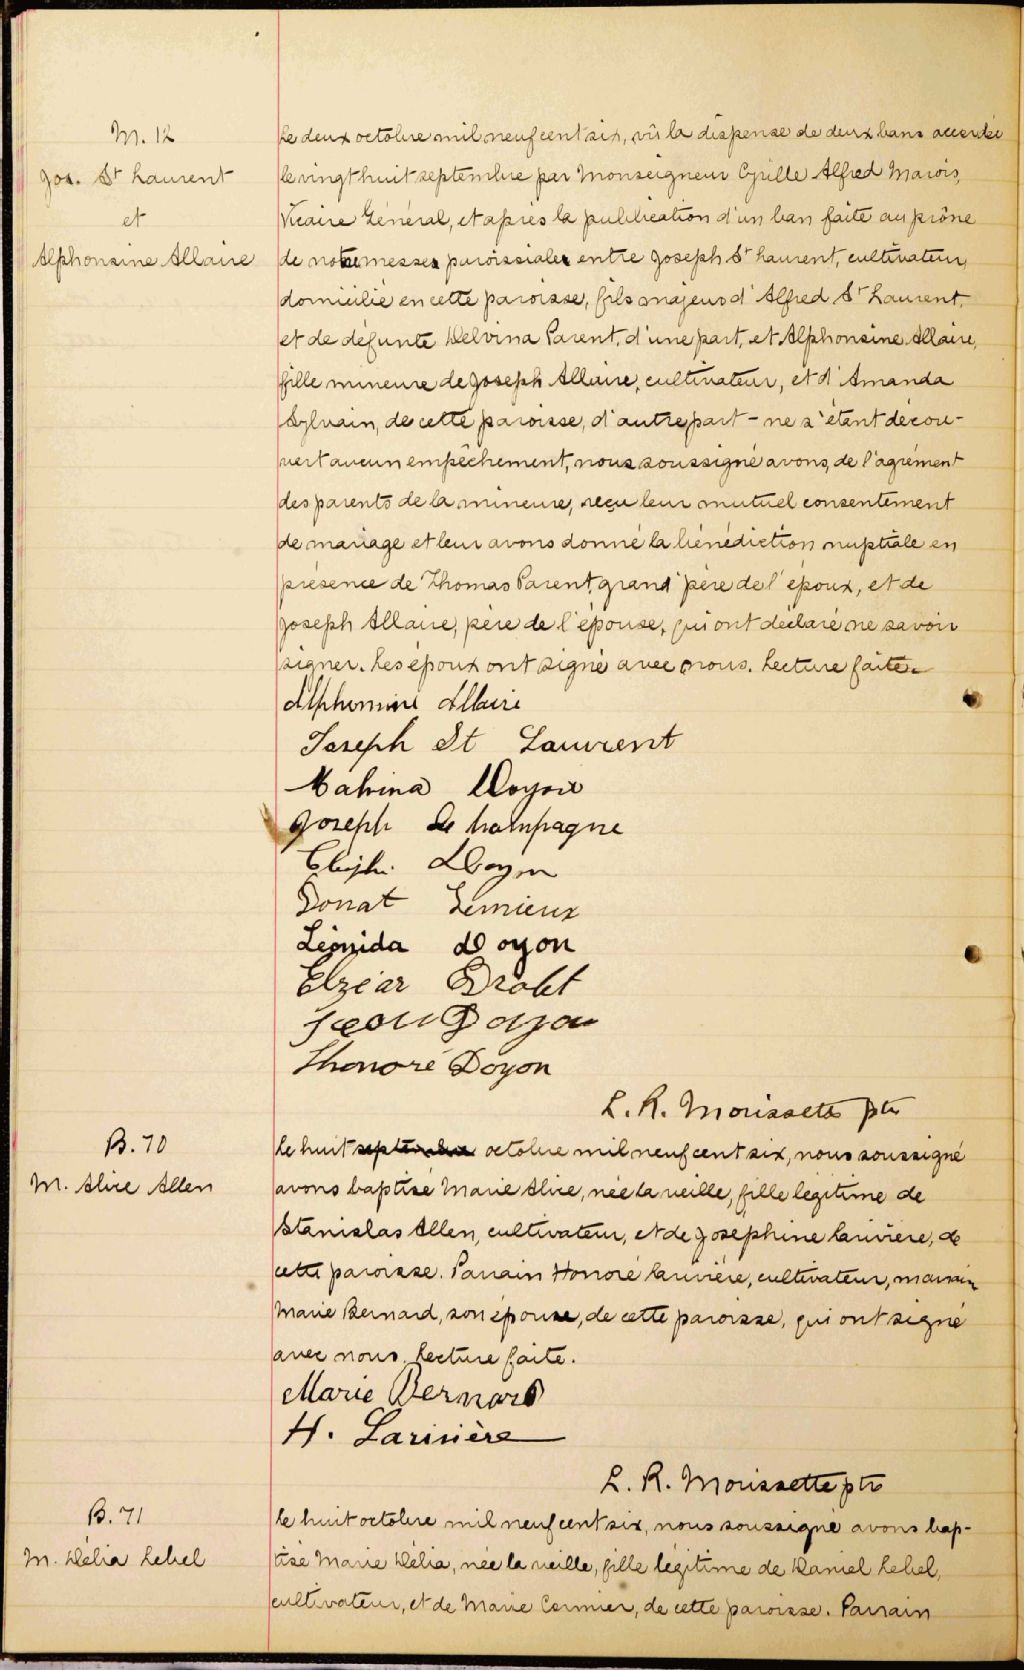 M. 12
Jos. St Laurent
et
Alphonsine Allaire
Le deux octobre mil neuf cent six, vû la dispense de deux bans accordée
le vingt huit septembre par Monseigneur Cyrille Alfred Marois,
Vicaire Général, et après la publication d'un ban faite au prône
de notre messe paroissiale entre Joseph St Laurent, cultivateur,
domicilié en cette paroisse, fils majeur d'Alfred St Laurent,
et de défunte Delvina Parent, d'une part, et Alphonsine Allaire,
fille mineure de Joseph Allaire, cultivateur, et d'Amanda
Sylvain, de cette paroisse, d'autre part - ne s'étant décou-
vert aucun empêchement, nous soussigné avons, de l'agrément
des parents de la mineure, reçu leur mutuel consentement
de mariage et leur avons donné la bénédiction nuptiale en
présence de Thomas Parent, grand père de l'époux, et de
Joseph Allaire, père de l'épouse, qui ont déclaré ne savoir
signer. Les époux ont signé avec nous. Lecture faite.
Alphonsine Allaire
Joseph St Laurent
Malvina Doyon
Joseph Champagne
Doyon
Donat Lemieux
Léonida Doyon
Elzéar Drolet
Doyon
Thonoré Doyon
L. R. Morissette ptre
B. 70
M. Alice Allen
Le huit septembre octobre mil neuf cent six, nous soussigné
avons baptisé Marie Alice, née la veille, fille légitime de
Stanislas Allen, cultivateur, et de Joséphine Larivière, de
cette paroisse. Parrain Honoré Larivière, cultivateur, marraine
Marie Bernard, son épouse, de cette paroisse, qui ont signé
avec nous. Lecture faite.
Marie Bernard
H. Larivière
L. R. Morissette ptre
B. 71
M. Délia Lebel
Le huit octobre mil neuf cent six, nous soussigné avons bap-
tisé Marie Délia, née la veille, fille légitime de Daniel Lebel,
cultivateur, et de Marie Cormier, de cette paroisse. Parrain